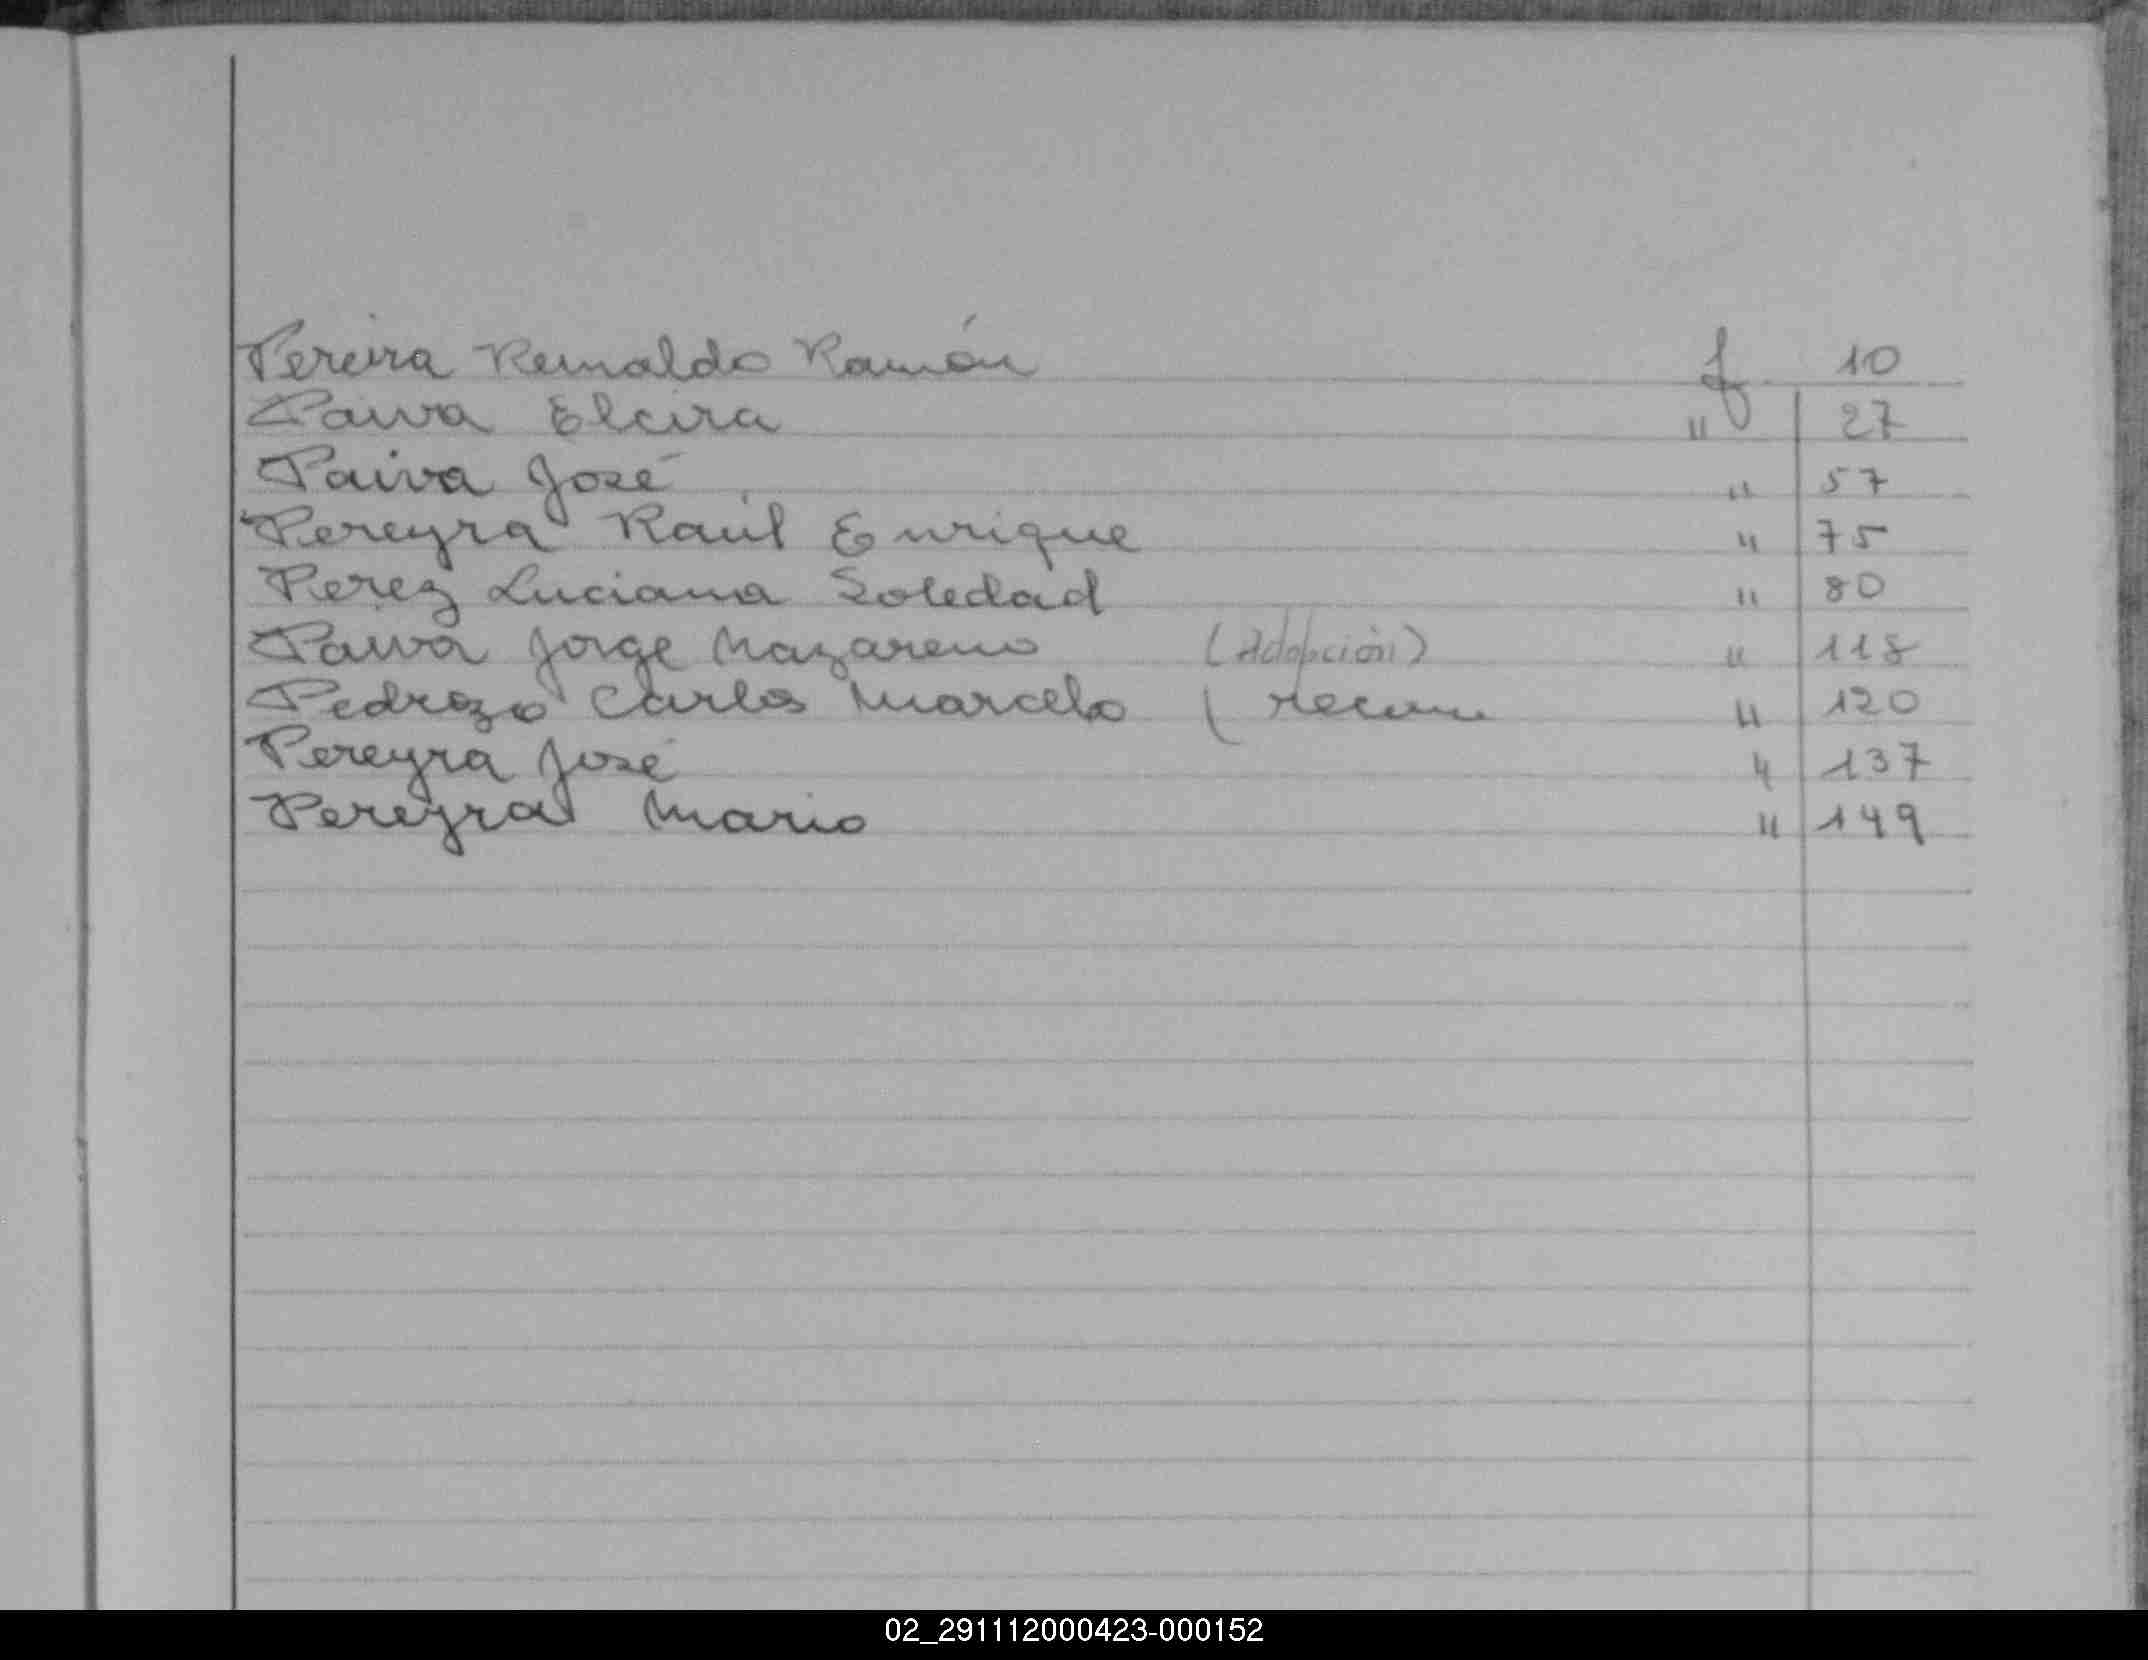 Pereira Reinaldo Ramón f 10
Paiva Elcira " 27
Paiva José " 57
Pereyra Raúl Enrique " 75
Perez Luciana Soledad " 80
Paiva Jorge Nazareno (Adopción) " 118
Pedrozo Carlos Marcelo ( recon " 120
Pereyra José " 137
Pereyra Mario " 149
02_291112000423-000152